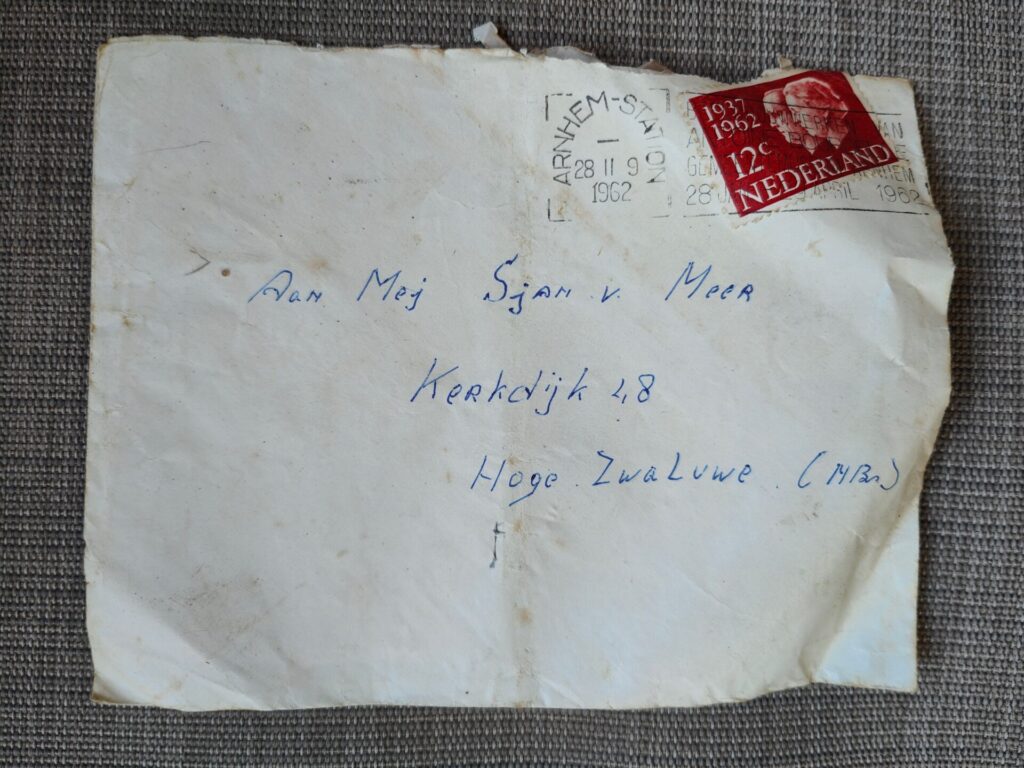 ARNHEM-STATION
I
28 II 9
1962
VAN
GEM
ARNHEM
28 JA APRIL 1962
1937
1962
12c
NEDERLAND
Aan Mej Sjan v. Meer
Kerkdijk 48
Hoge Zwaluwe. (NBr)